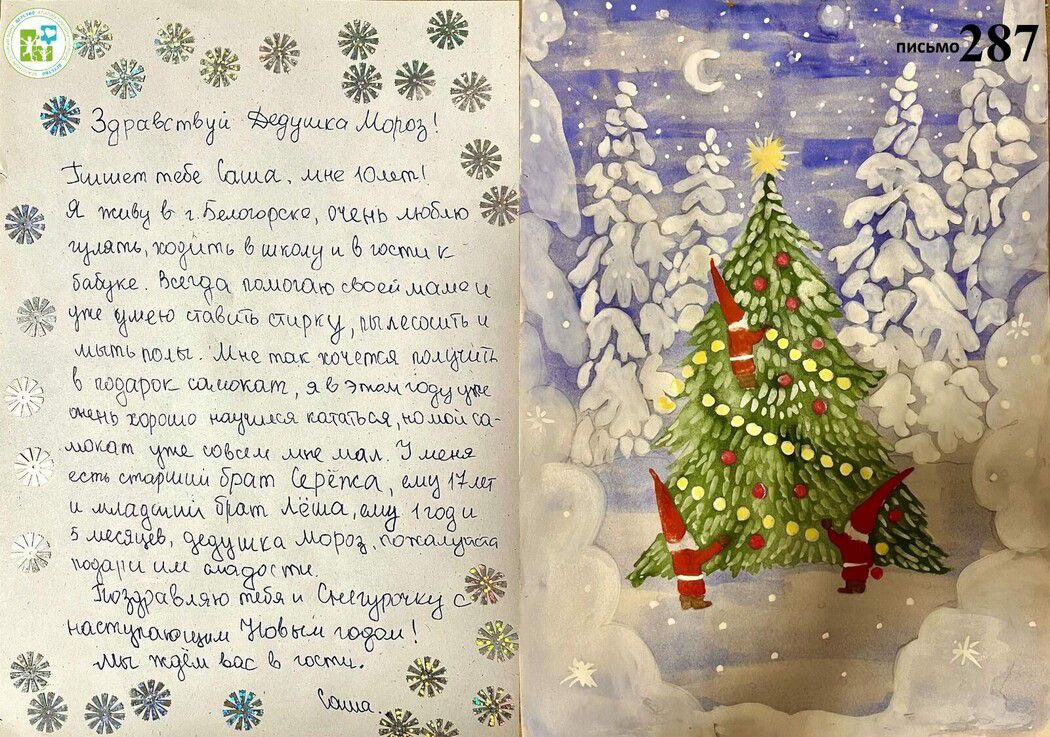 письмо 287
Здравствуй Дедушка Мороз!
Пишет тебе Саша, мне 10 лет!
Я живу в г. Белогорске, очень люблю
гулять, ходить в школу и в гости к
бабуке. Всегда помогаю своей маме и
уже умею ставить стирку, пылесосить и
мыть полы. Мне так хочется получить
в подарок самокат, я в этом году уже
очень хорошо научился кататься, но мой са-
мокат уже совсем мне мал. У меня
есть старший брат Серёжа, ему 17 лет
и младший брат Лёша, ему 1 год и
5 месяцев, дедушка Мороз, пожалуйста
подари им сладости.
Поздравляю тебя и Снегурочку с
наступающим Новым годом!
Мы ждём вас в гости.
Саша.